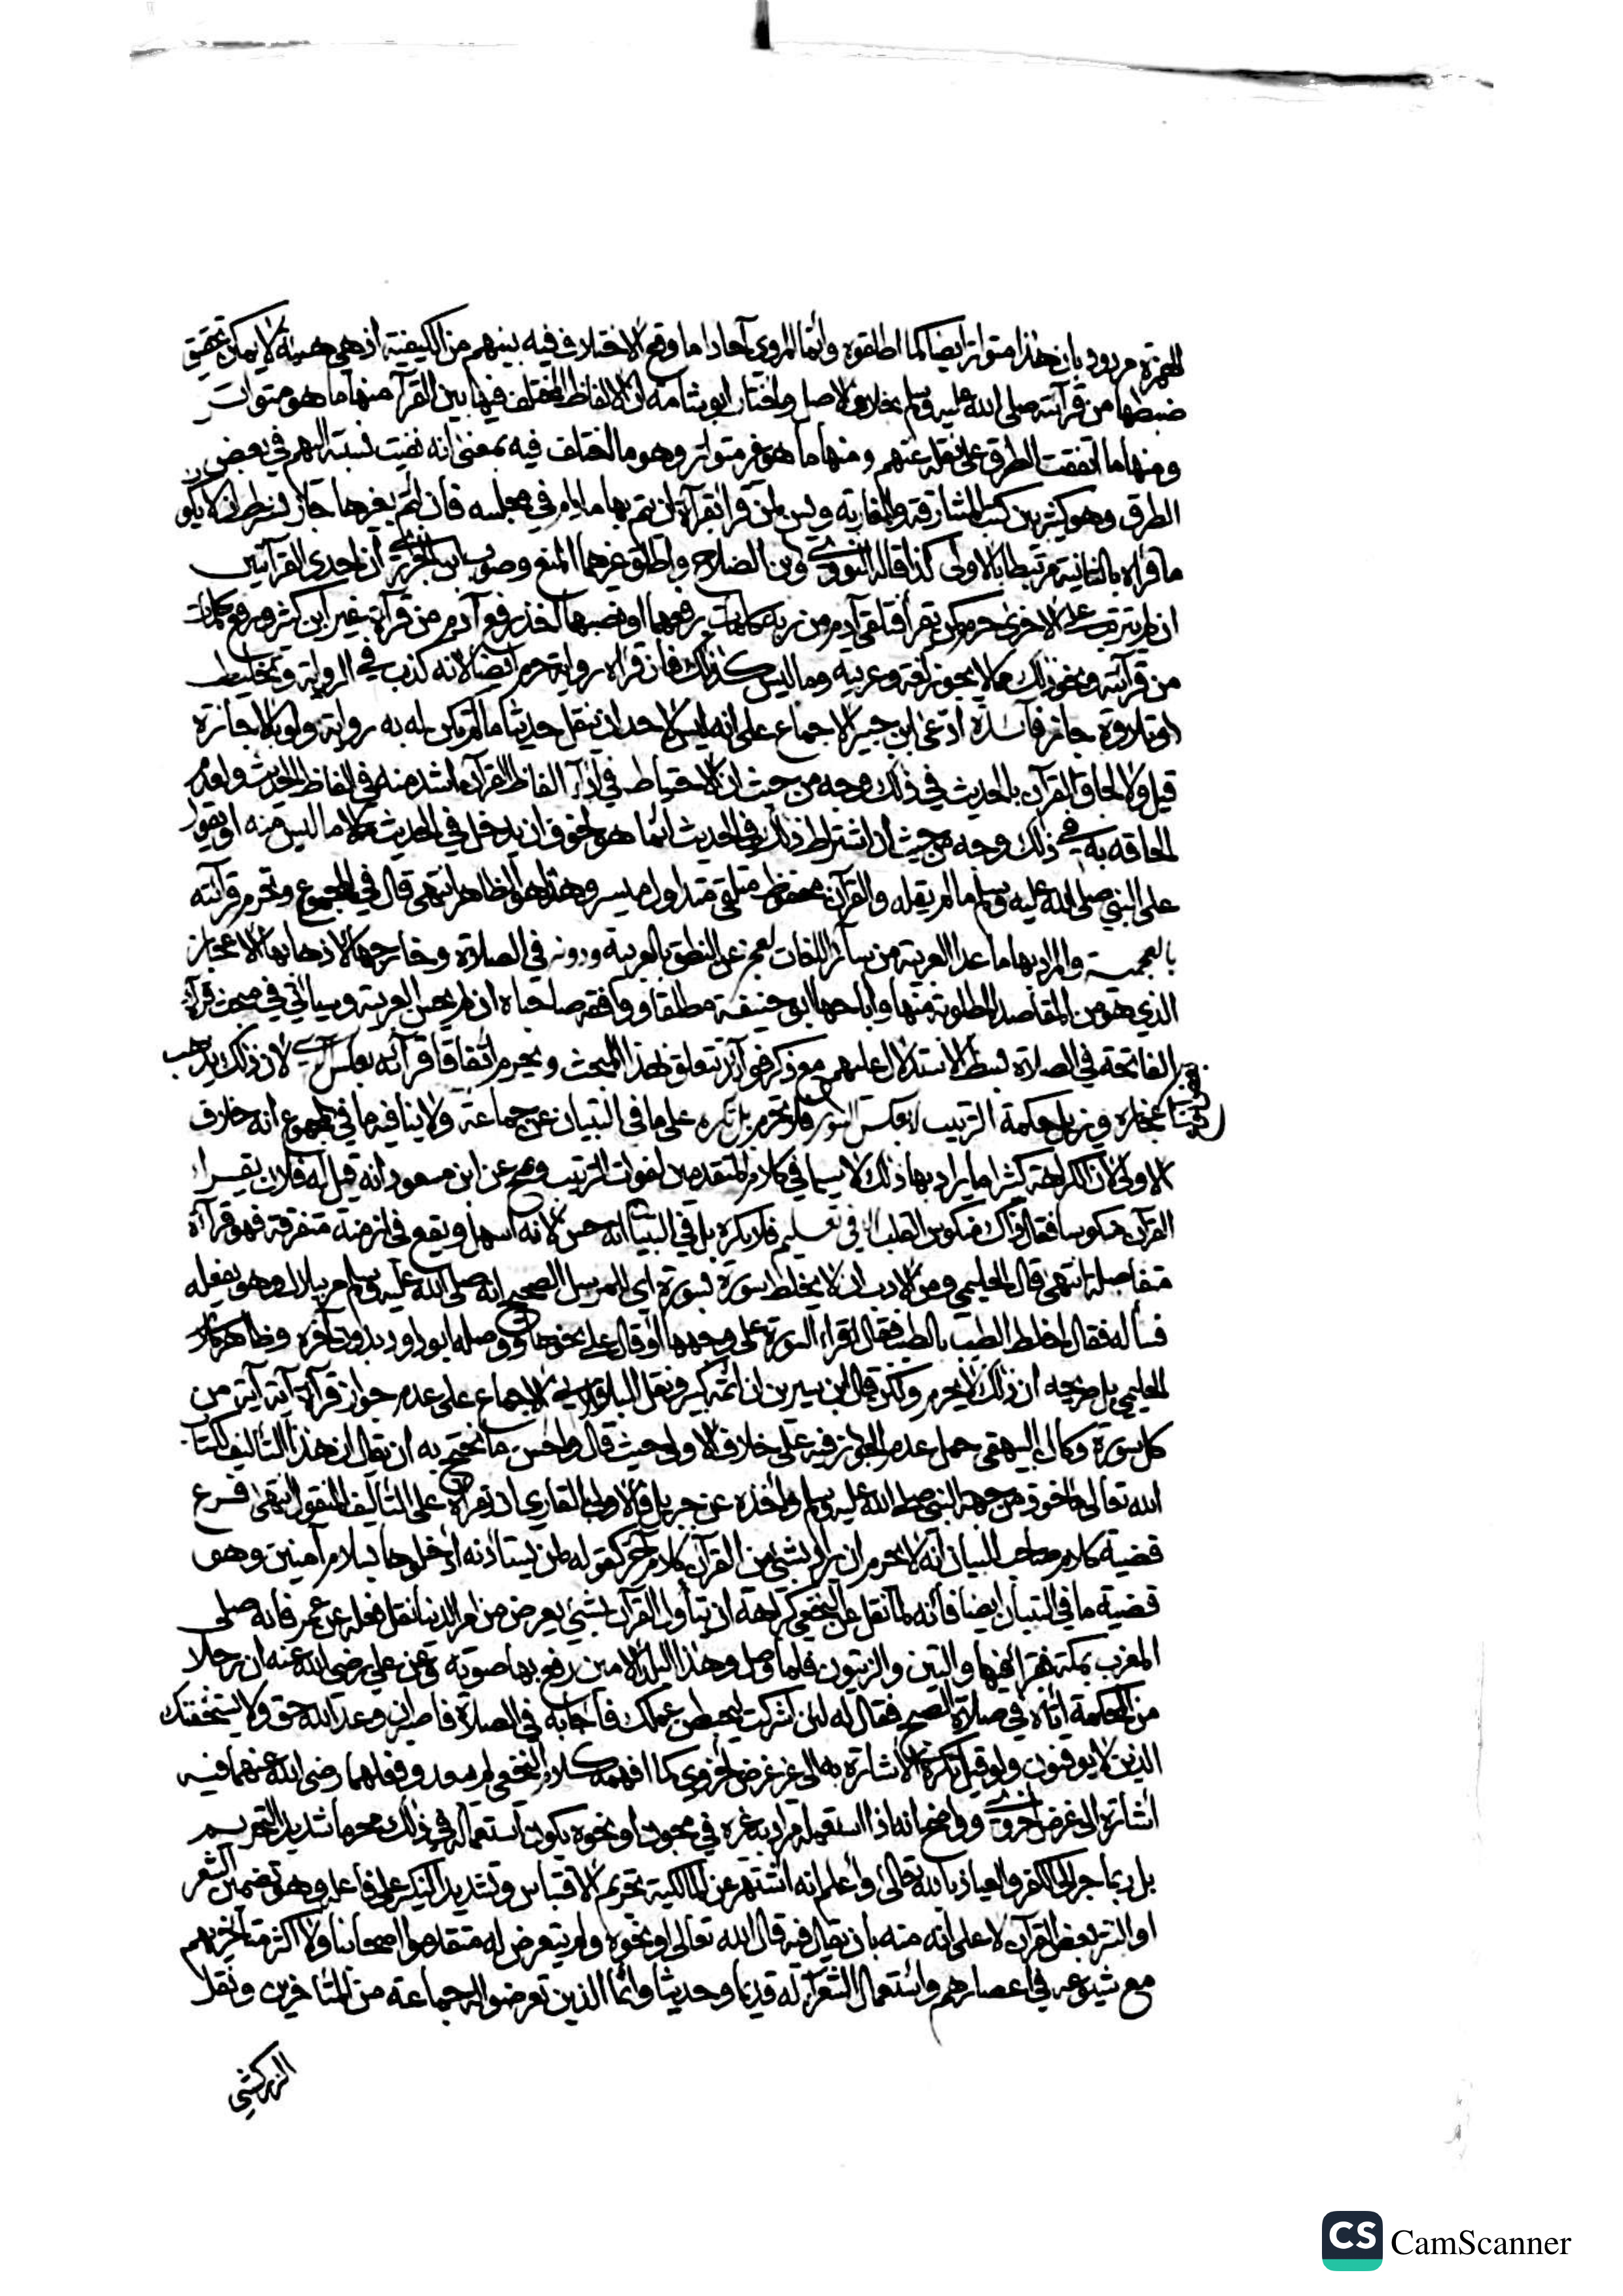 الهمزة مردود بان هذا متواتر ايضا كما اطلقوه وانما المروي آحادا ما وقع الاختلاف فيه بينهم من الكيفية اذ هي هيئة لا يمكن تحقيق
ضبطها من قرآءته صلى الله عليه وسلم بخلاف الاصل واختار ابو شامة ان الالفاظ المختلف فيها بين القرآء منها ما هو متواتر
ومنها ما اتفقت الطرق على نقله عنهم ومنها ما هو غير متواتر وهو ما اختلف فيه بمعنى انه نفيت نسبته اليهم في بعض
الطرق وهو كثير بين كتب المشارقة والمغاربة وليس لمن قرأ بقرآءة ان يتم بها ما دام في مجلسه فان تم بغيرها جاز بشرط ان لا يكون
ما قرأه بالثانية مرتبطا بالاولى كذا قاله النووي وابن الصلاح واطلق غيرهما المنع وصوب ابن الجزري ان احدى القرآءتين
ان لم تترتب على الاخرى حرم كمن يقرأ فتلقى آدم من ربه كلمات برفعهما او نصبهما آخذ رفع آدم من قرآءة غير ابن كثير ورفع كلمات
من قرآءته ونحو ذلك مما لا يجوز لغة وعربية وما ليس كذلك فان قرأه رواية حرم ايضا لانه كذب في الرواية وتخليط
او تلاوة جاز فآئدة ادعى ابن خير الاجماع على انه ليس لاحد ان ينقل حديثا ما لم يكن له به رواية ولو بالاجازة
قيل ولالحاق القرآن بالحديث في ذلك وجه من حيث ان الاحتياط في ادآء الفاظ القرآن اشد منه في الفاظ الحديث ولعدم
الحاقه به في ذلك وجه من حيث ان اشتراط ذلك في الحديث انما هو لخوف ان يدخل في الحديث ما ليس منه او يتقول
على النبي صلى الله عليه وسلم ما لم يقله والقرآن محفوظ متلقى متداول ميسر وهذا هو الظاهر انتهى قال في المجموع وتحرم قرآئته
بالعجمية والمراد بها ما عدا العربية من سآئر اللغات لعجز عن النطق بالعربية ودونه في الصلاة وخارجها لاذهابها الاعجاز
الذي هو من المقاصد المطلوبة منها واباحها ابو حنيفة مطلقا ووافقه صاحباه ان لم يحسن العربية وسيأتي في مبحث قرآءة
الفاتحة في الصلاة بسط الاستدلال عليهم مع ذكر فوآئد تتعلق بهذا المبحث ويحرم اتفاقا قرآءته بعكس الآي لان ذلك يذهب
اعجازه ويزيل حكمة الترتيب لا بعكس السور فلا يحرم بل يكره على ما في التبيان عن جماعة ولا ينافيه ما في المجموع انه خلاف
الاولى لان الكراهة كثيرا ما يراد بها ذلك لا سيما في كلام المتقدمين لفوات الترتيب وصح عن ابن مسعود انه قيل له فلان يقرأ
القرآن منكوسا فقال ذاك منكوس القلب اما في تعليم فلا يكره بل في التبيان انه حسن لانه اسهل ويقع في ازمنة متفرقة فهو قرآءة
متفاصلة انتهى قال الحليمي ومن الادب ان لا يخلط سورة بسورة اي للمرسل الصحيح انه صلى الله عليه وسلم مر ببلال وهو يفعله
فسأله فقال اخلط الطيب بالطيب فقال اقرأ السورة على وجهها او قال على نحوها ووصله ابو داود بدون آخره وظاهر كلام
الحليمي بل صريحه ان ذلك لا يحرم ولكن قال ابن سيرين انه اثم كبير ونقل الباقلاني الاجماع على عدم جواز قرآءة آية آية من
كل سورة وكان البيهقي حمل عدم الجواز فيه على خلاف الاولى حيث قال واحسن ما يحتج به ان يقال ان هذا التأليف لكتاب
الله تعالى مأخوذ من جهة النبي صلى الله عليه وسلم واخذه عن جبريل فالاولى للقاري ان يقرأه على التأليف المنقول انتهى فرع
قضية كلام صاحب البيان انه لا يحرم ان يراد بشيء من القرآن كلام آخر كقوله لمن يستأذنه ادخلوها بسلام آمنين وهو
قضية ما في التبيان ايضا فانه لما نقل عن النخعي كراهة ان يتأول القرآن بشيء يعرض من امر الدنيا نقل فعله عن عمر فانه صلى
المغرب بمكة فقرأ فيها والتين والزيتون فلما وصل وهذا البلد الامين رفع بها صوته وعن علي رضي الله عنه ان رجلا
من المحكمة اتاه في صلاة الصبح فقال له لئن اشركت ليحبطن عملك فأجابه في الصلاة فاصبر ان وعد الله حق ولا يستخفنك
الذين لا يوقنون ولو قيل بكراهة الاشارة به الى غير غرض اخروي كما افهمه كلام النخعي لم يبعد وفعلهما رضي الله عنهما فيه
اشارة الى غرض اخروي وواضح انه اذا استعمله مراد به غيره في مجون او نحوه يكون استعماله في ذلك محرما شديد التحريم
بل ربما جر الى الكفر والعياذ بالله تعالى واعلم انه اشتهر عن المالكية تحريم الاقتباس وتشديد النكير على فاعله وهو تضمين الشعر
او النثر بعض القرآن لا على انه منه بان يقال فيه قال الله تعالى ونحوه ولم يتعرض له متقدموا اصحابنا ولا اكثر متأخريهم
مع شيوعه في اعصارهم واستعمال الشعرآء له قديما وحديثا وانما الذين تعرضوا له جماعة من المتأخرين ونقل
الزركشي
CS CamScanner